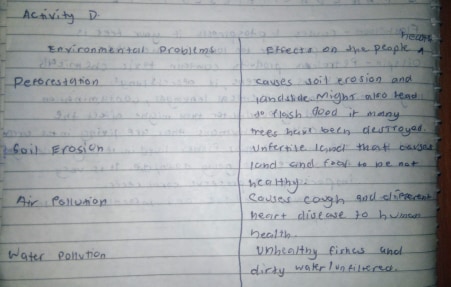 Activity D.
Environmental Problems
Effects on the people
Deforestation
causes soil erosion and
landslide Might also tend
to flash flood if many
trees have been destroyed.
Soil Erosion
Unfertile land that causes
land and food to be not
healthy.
Air Pollution
Causes cough and different
heart disease to human
health.
Water Pollution
Unhealthy fishes and
dirty water/unfiltered.